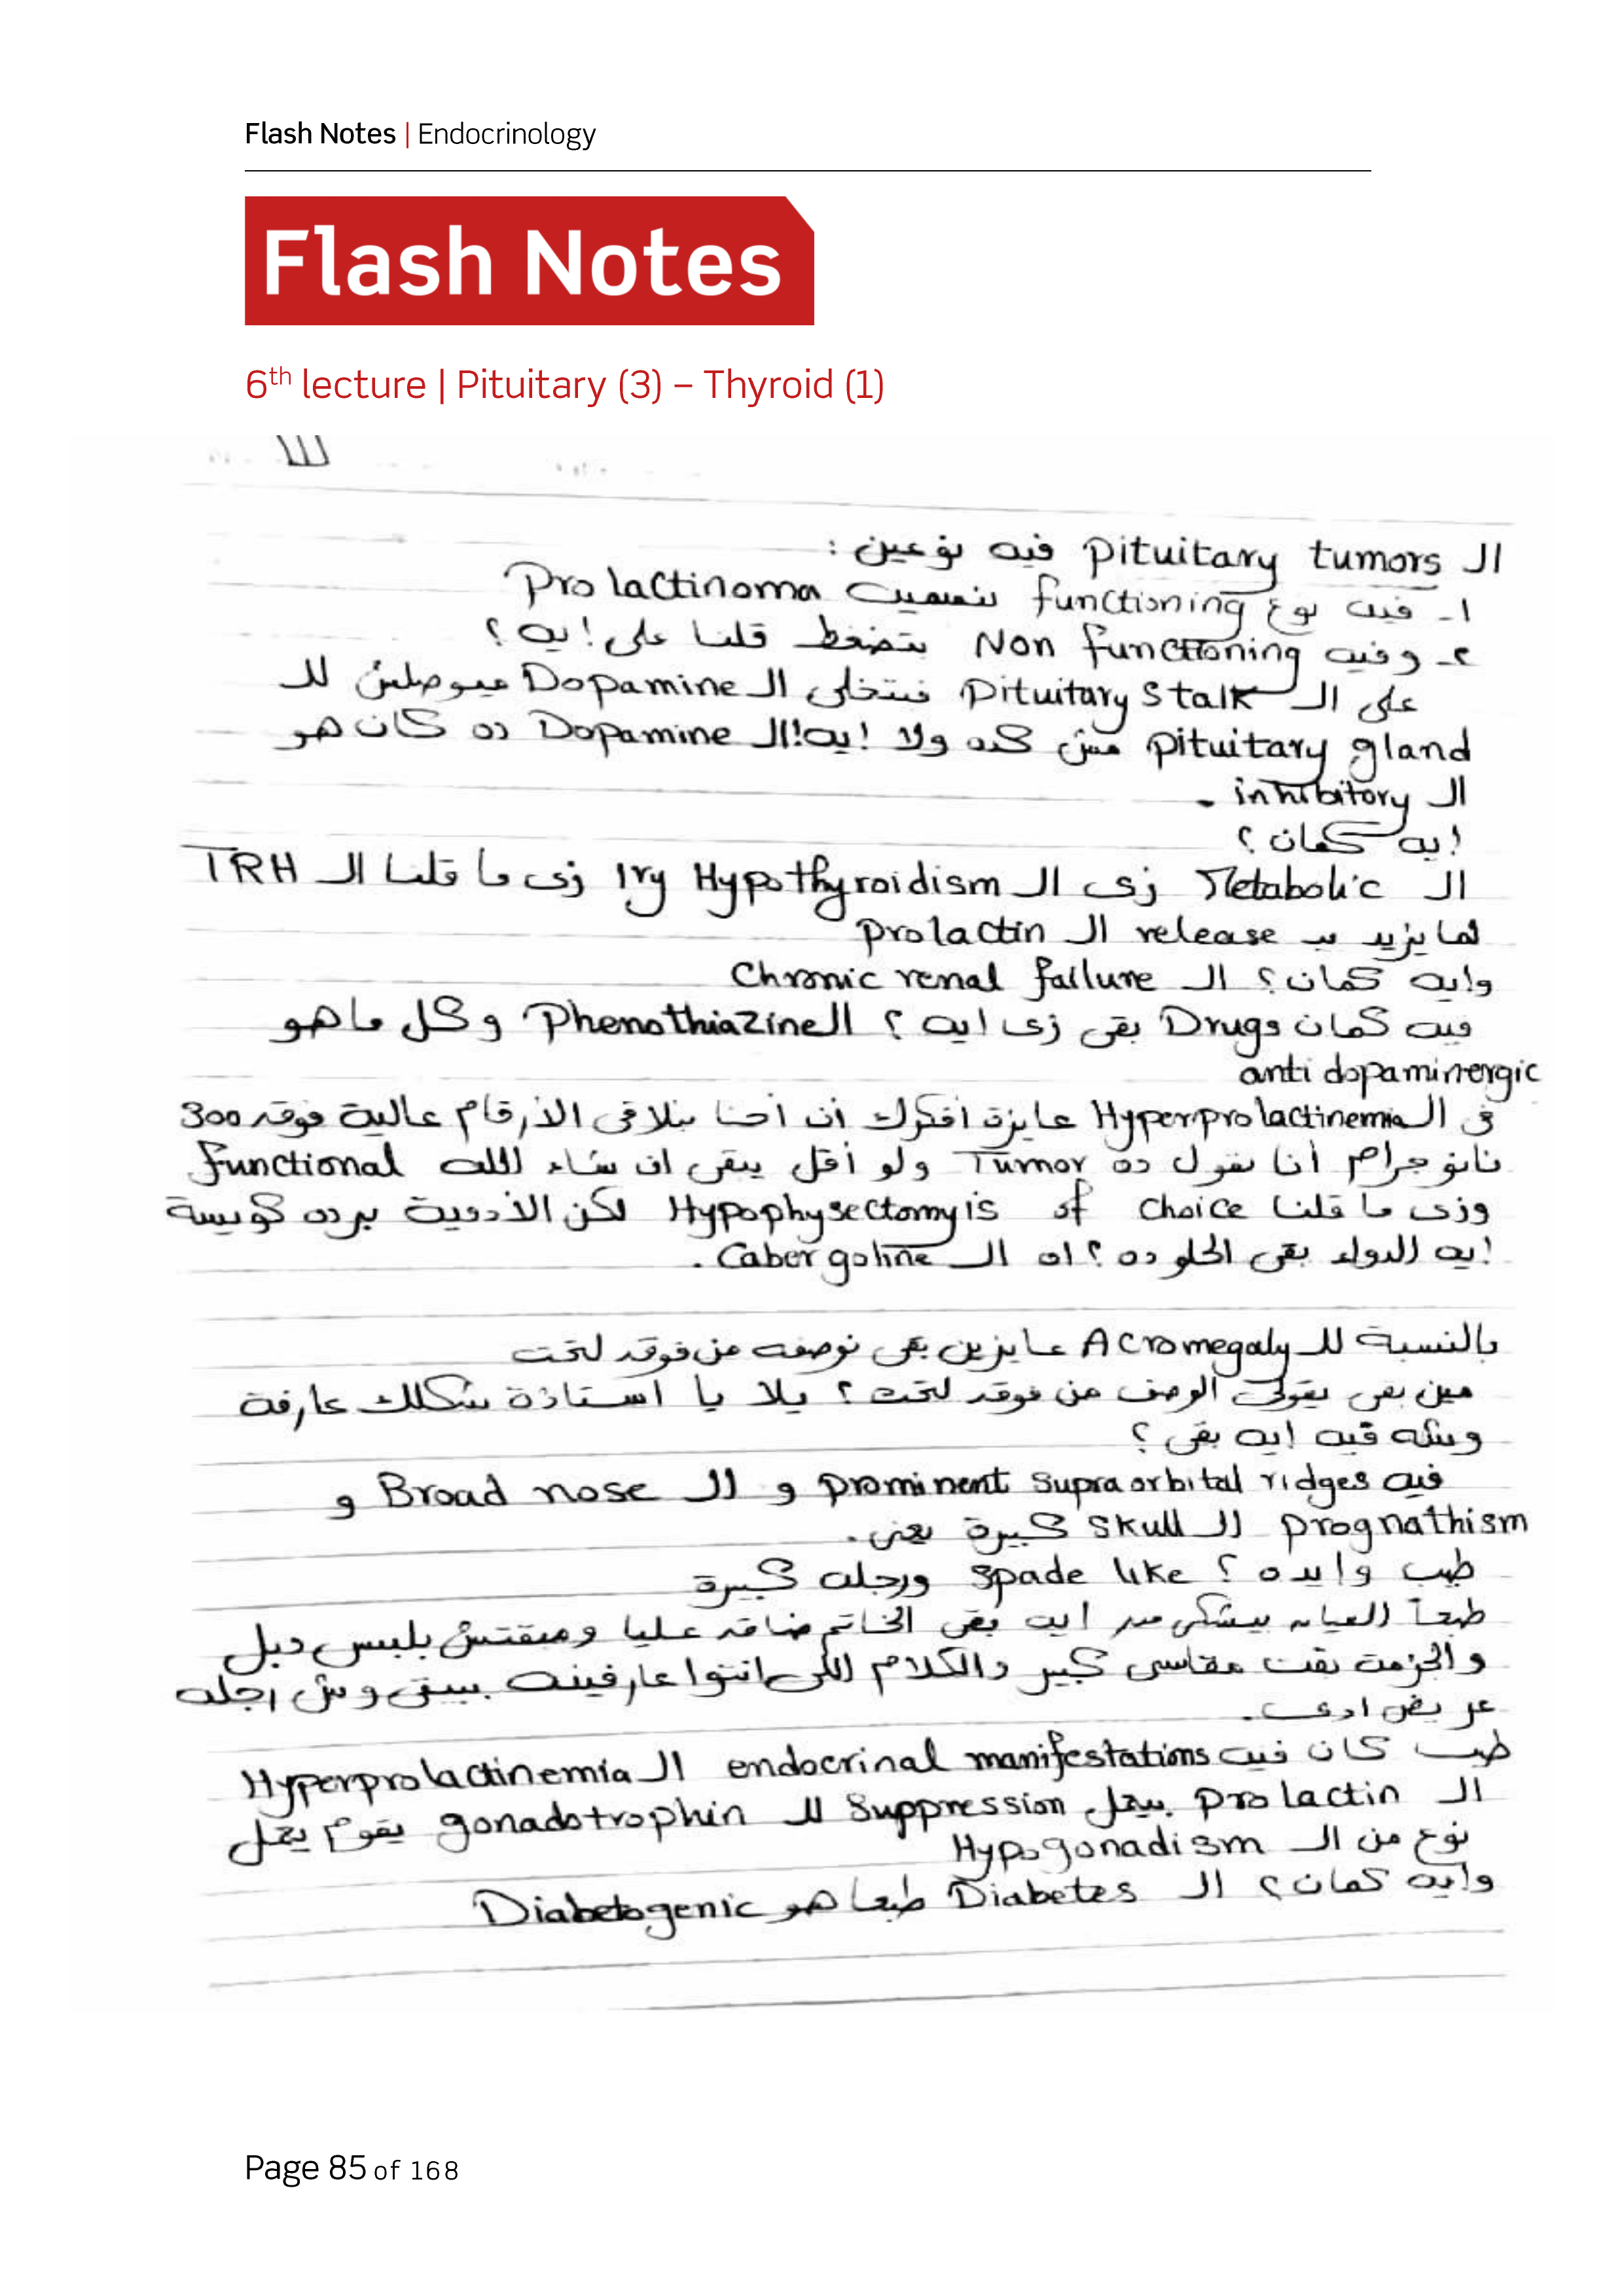 Flash Notes | Endocrinology
Flash Notes
6th lecture | Pituitary (3) – Thyroid (1)
ال pituitary tumors فيه نوعين :
١- فيه نوع functioning نسميه Prolactinoma
٢- وفيه Non functioning بتضغط قلنا على إيه ؟
على ال Pituitary Stalk فتخلى ال Dopamine ميوصلش لل
pituitary gland مش كده ولا إيه! ال Dopamine ده كان هو
ال inhibitory .
إيه كمان ؟
ال Metabolic زى ال 1ry Hypothyroidism زى ما قلنا ال TRH
لما يزيد بـ release ال prolactin
وايه كمان ؟ ال Chronic renal failure
فيه كمان Drugs بقى زى ايه ؟ ال Phenothiazine وكل ما هو
anti dopaminergic
فى ال Hyperprolactinemia عايزة أفكرك أن أحنا بنلاقى الأرقام عالية فوق 300
نانوجرام أنا بقول ده Tumor ولو أقل يبقى ان شاء الله functional
وزى ما قلنا Hypophysectomy is of choice لكن الأدوية برده كويسة
إيه الدواء بقى الحلو ده ؟ اه ال Cabergoline .
بالنسبة لل Acromegaly عايزين بقى نوصفه من فوق لتحت
مين بقى يقولى الوصف من فوق لتحت ؟ يلا يا استاذة شكلك عارفة
وشه فيه ايه بقى ؟
فيه prominent supraorbital ridges و ال Broad nose و
prognathism ال skull كبيرة يعنى .
طب وايده ؟ spade like ورجله كبيرة
طبعاً العيان بيشتكى من ايه بقى الخاتم ضاق عليا ومبقتش بلبس دبل
والجزمة بقت مقاسى كبير والكلام اللى انتوا عارفينه بيبقى وش رجله
عريض اوى .
طيب كان فيه endocrinal manifestations ال Hyperprolactinemia
ال prolactin بيعمل Suppression لل gonadotrophin يقوم يعمل
نوع من ال Hypogonadism
وايه كمان ؟ ال Diabetes طبعا هو Diabetogenic
Page 85 of 168